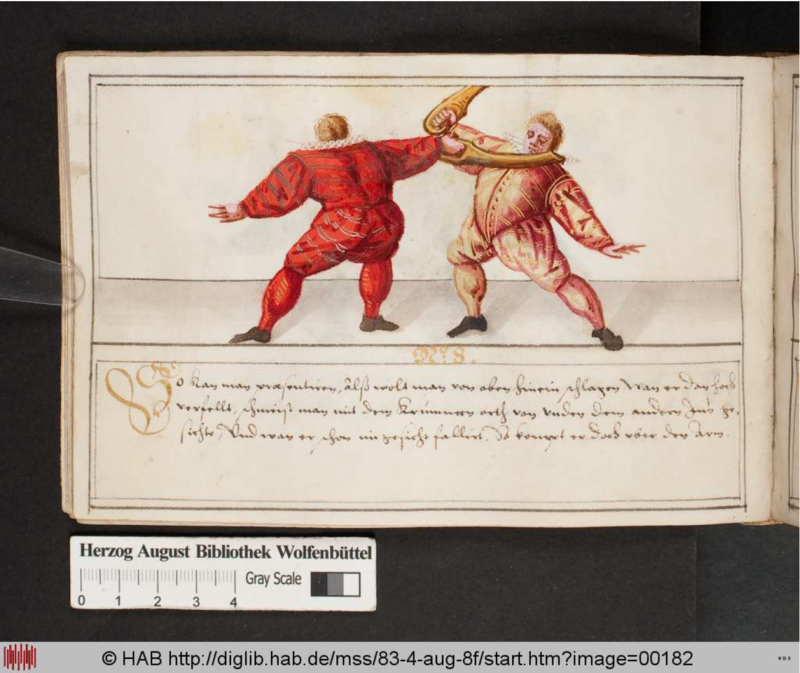 No: 8.
So kan man præsentiren, Alß wolt man von oben hinein schlagen Wan er dan hoch
verfellt, schmeist man mit dem Krummen orth von unden dem andern ins ge,
sichte, Und wan er schon im gesicht fallirt, So kompt er doch uber den Arm.
Herzog August Bibliothek Wolfenbüttel
Gray Scale
0 1 2 3 4
© HAB http://diglib.hab.de/mss/83-4-aug-8f/start.htm?image=00182